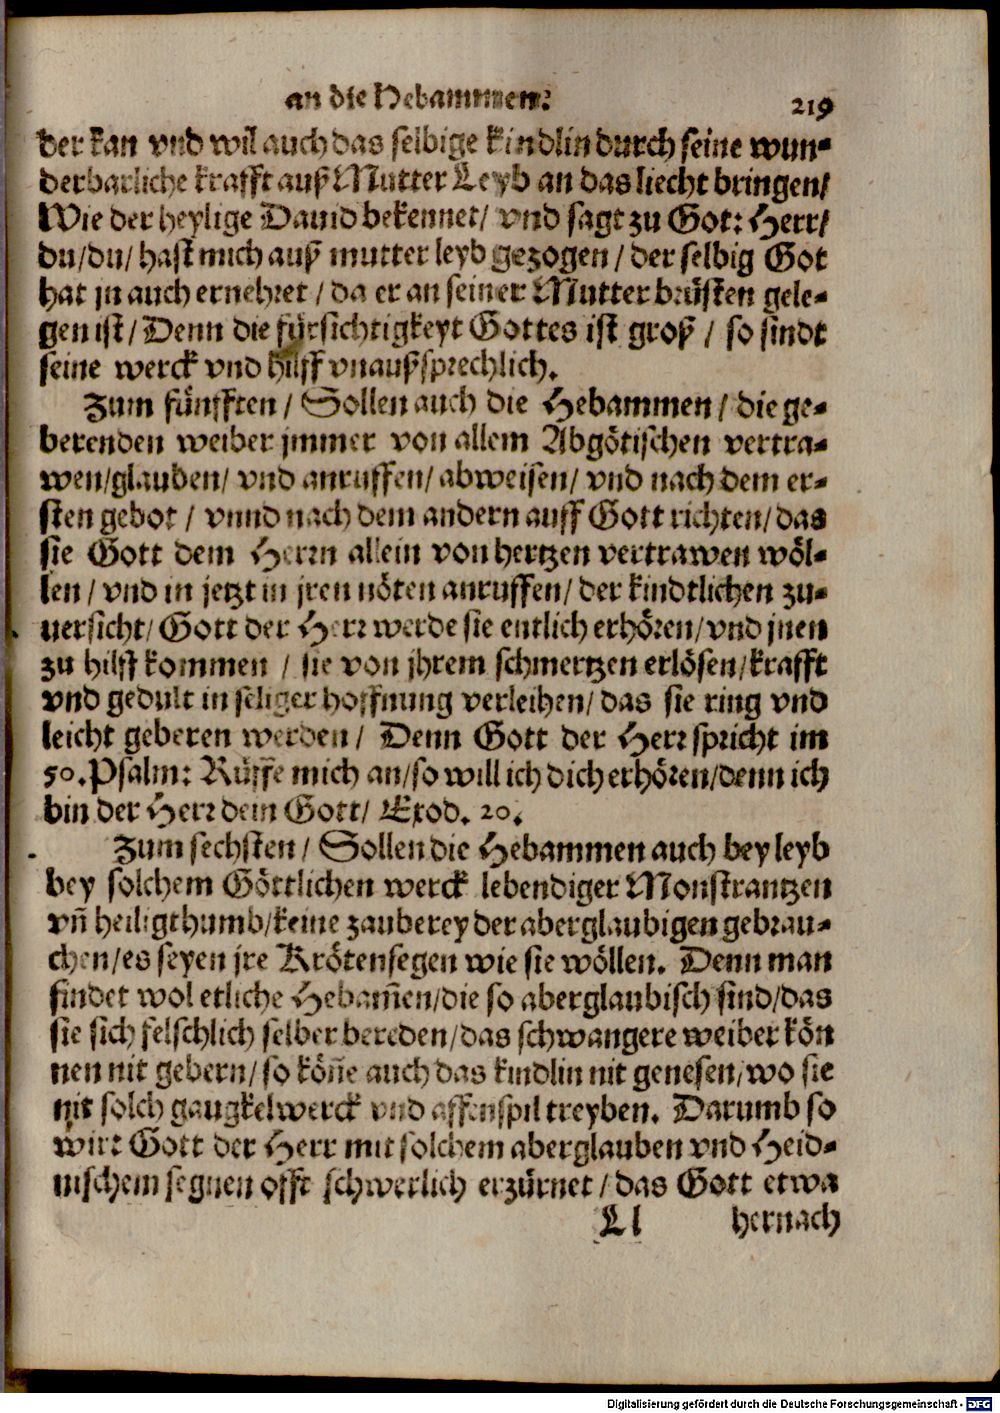 an die Hebammen.
219
der kan vnd wil auch das selbige kindlin durch seine wun-
derbarliche krafft auß Mutter Leyb an das liecht bringen/
Wie der heylige Dauid bekennet/ vnd sagt zu Got: Herr/
du/du/ hast mich auß mutter leyb gezogen/ der selbig Got
hat jn auch ernehret/ da er an seiner Mutter brüsten gele-
gen ist/ Denn die fürsichtigkeyt Gottes ist groß/ so sindt
seine werck vnd hilff vnaußsprechlich.
Zum fünfften/ Sollen auch die Hebammen/ die ge-
berenden weiber jmmer von allem Abgötischen vertra-
wen/glauben/ vnd anruffen/ abweisen/ vnd nach dem er-
sten gebot/ vnnd nach dem andern auff Gott richten/ das
sie Gott dem Herrn allein von hertzen vertrawen wöl-
len/ vnd in jetzt in jren nöten anruffen/ der kindtlichen zu-
uersicht/ Gott der Herr werde sie entlich erhören/ vnd jnen
zu hilff kommen / sie von jhrem schmertzen erlösen/krafft
vnd gedult in seliger hoffnung verleihen/ das sie ring vnd
leicht geberen werden/ Denn Gott der Herr spricht im
50. Psalm: Rüffe mich an/so will ich dich erhören/denn ich
bin der Herr dein Gott/ Exod. 20.
Zum sechsten/ Sollen die Hebammen auch bey leyb
bey solchem Göttlichen werck lebendiger Monstrantzen
vn̄ heiligthumb/keine zauberey der aberglaubigen gebrau-
chen/es seyen jre Krötensegen wie sie wöllen. Denn man
findet wol etliche Hebam̄en/die so aberglaubisch sind/das
sie sich felschlich selber bereden/das schwangere weiber kön
nen nit gebern/ so kön̄e auch das kindlin nit genesen/wo sie
nit solch gaugkelwerck vnd affenspil treyben. Darumb so
wirt Gott der Herr mit solchem aberglauben vnd Heid-
nischem segnen offt schwerlich erzürnet/ das Gott etwa
Ll hernach
Digitalisierung gefördert durch die Deutsche Forschungsgemeinschaft - DFG